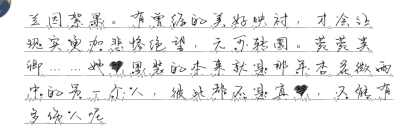 兰因絮果。有曾经的美好映衬，才会让
现实更加悲惨绝望，无可转圜。莞莞类
卿……她假装的本来就是那年杏花微雨
中的另一个人，彼此都不是真，又能有
多倾心呢